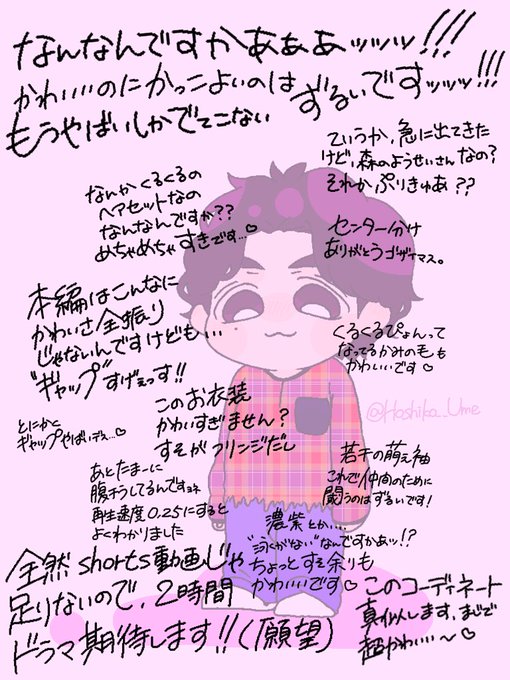 なんなんですかあぁぁッッッ!!!
かわいいのにかっこよいのは ずるいですッッッ!!!
もうやばいしかでてこない
ていうか、急に出てきた
けど、森のようせいさんなの?
それかぷりきゅあ??
なんかくるくるの
ヘアセットなの
なんなんですか??
めちゃめちゃすきです…♡
センター分け
ありがとうゴザイマス。
本編はこんなに
かわいさ全振り
じゃないんですけども…
"ギャップ"すげぇっす!!
くるくるぴょんって
なってるかみの毛も
かわいいです♡
とにかく
ギャップやばいデス…♡
このお衣装
かわいすぎません?
すそがフリンジだし
@Hoshika_Ume
あとたまーに
腹チラしてるんですよね
再生速度0.25にすると
よくわかりました
若干の萌え袖
これで仲間のために
闘うのはずるいです!
濃紫とか…
"泳くがない"なんですかあッ!?
ちょっとすそ余りも
かわいいです♡
全然shorts動画じゃ
足りないので、2時間
ドラマ期待します!!(願望)
このコーディネート
真似します、まじで
超かわい…〜♡